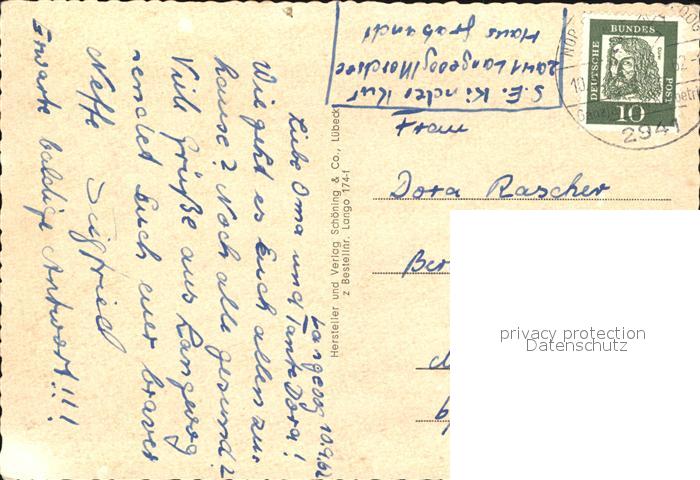 Langeoog 10.9.62
Liebe Oma und Tante Dora!
Wie geht es Euch allen zu-
hause? Noch alle gesund?
Viele Grüße aus Langeoog
sendet Euch euer braver
Neffe Siegfried
Erwarte baldige Antwort!!!
Hersteller und Verlag Schöning & Co., Lübeck
z Bestellnr. Lango 174-f
S. E. Kinder Kur
2941 Langeoog/Nordsee
Haus
DEUTSCHE BUNDESPOST
10
2941
Frau
Dora Rascher
Ber
privacy protection
Datenschutz